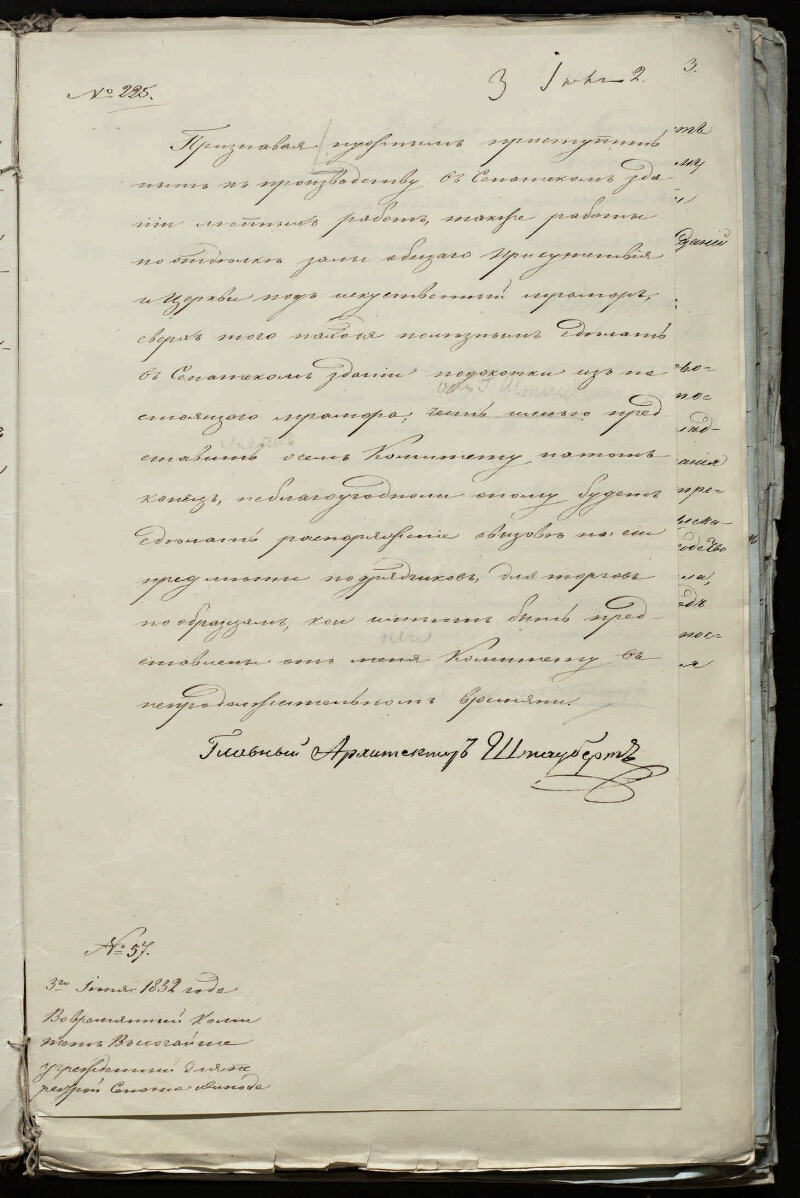 № 225.
3 Іюня 2.
3.
Признавая нужнымъ приступить
нынѣ къ производству въ Сенатскомъ зда
ніи лѣпныхъ работъ, также работы
по отдѣлкѣ залы общаго присутствія
и Церкви подъ искуственный мраморъ,
сверхъ того находя полезнымъ сдѣлать
въ Сенатскомъ зданіи подоконки изъ на
стоящаго мрамора, честь имѣю пред
ставить о семъ Комитету на тотъ
конецъ, неблагоугодноли оному будетъ
сдѣлать распоряженіе овызовѣ на сіи
предмѣты подрядчиковъ, для торговъ
по образцамъ, кои имѣютъ быть пред-
ставлены отъ меня Комитету въ
непродолжительномъ времяни.
Главный Архитекторъ Штаубертъ
№ 57.
3го Іюня 1832 года
Во времянный Коми
тетъ Высочайше
учрежденный для по
стройки Сената и Синода
даній